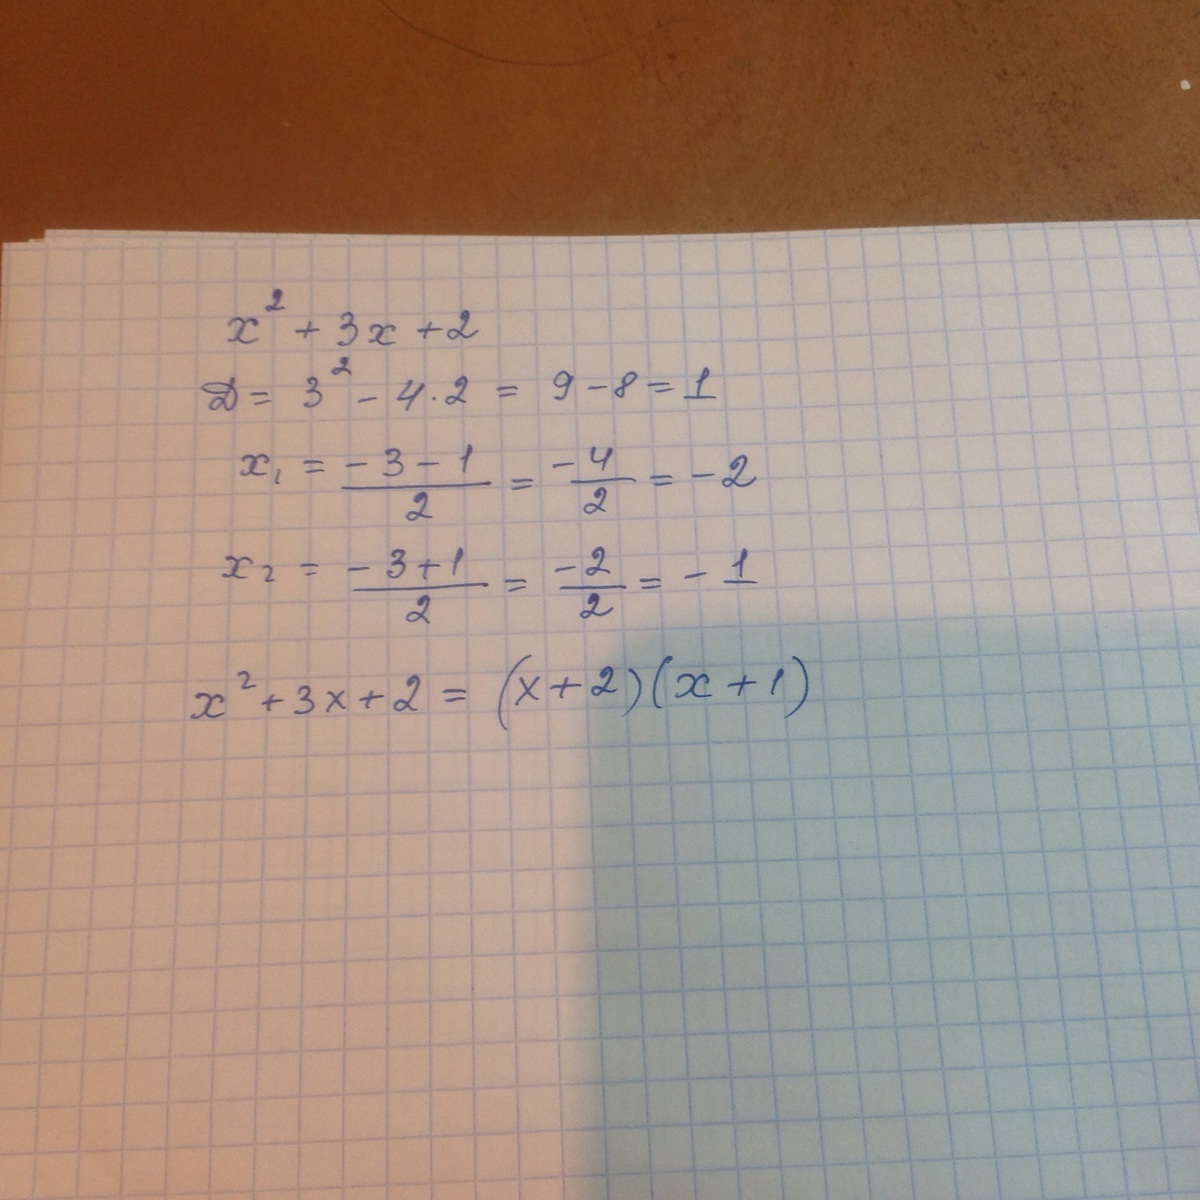 x² + 3x + 2
D = 3² - 4·2 = 9 - 8 = 1
x₁ = (-3-1)/2 = -4/2 = -2
x₂ = (-3+1)/2 = -2/2 = -1
x² + 3x + 2 = (x+2)(x+1)